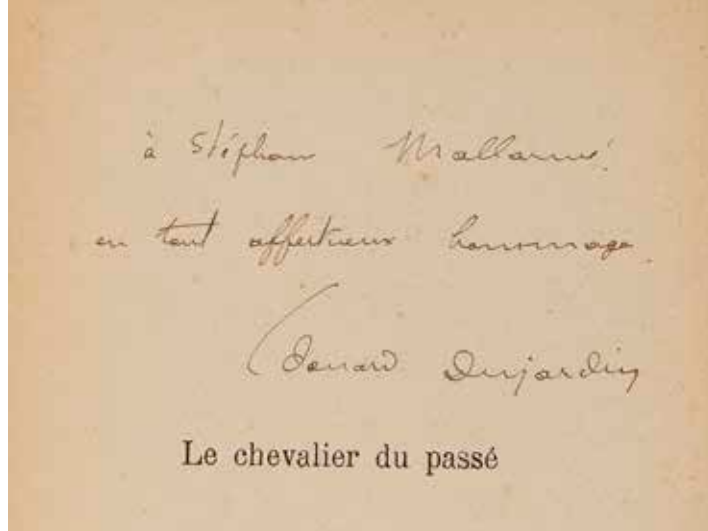 à Stéphane Mallarmé
en tout affectueux hommage.
Edouard Dujardin
Le chevalier du passé